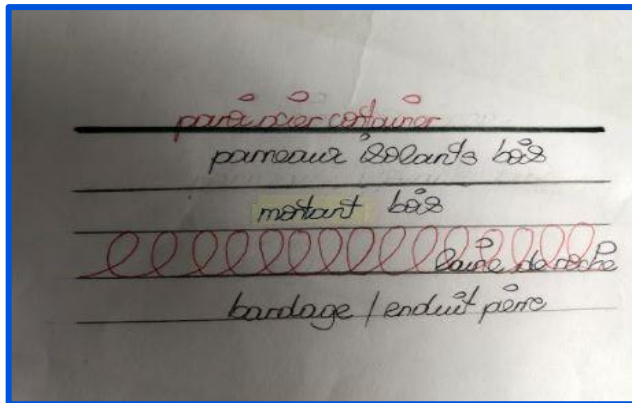 paroi acier container
panneaux isolants bois
montant bois
laine de roche
bardage / enduit pierre